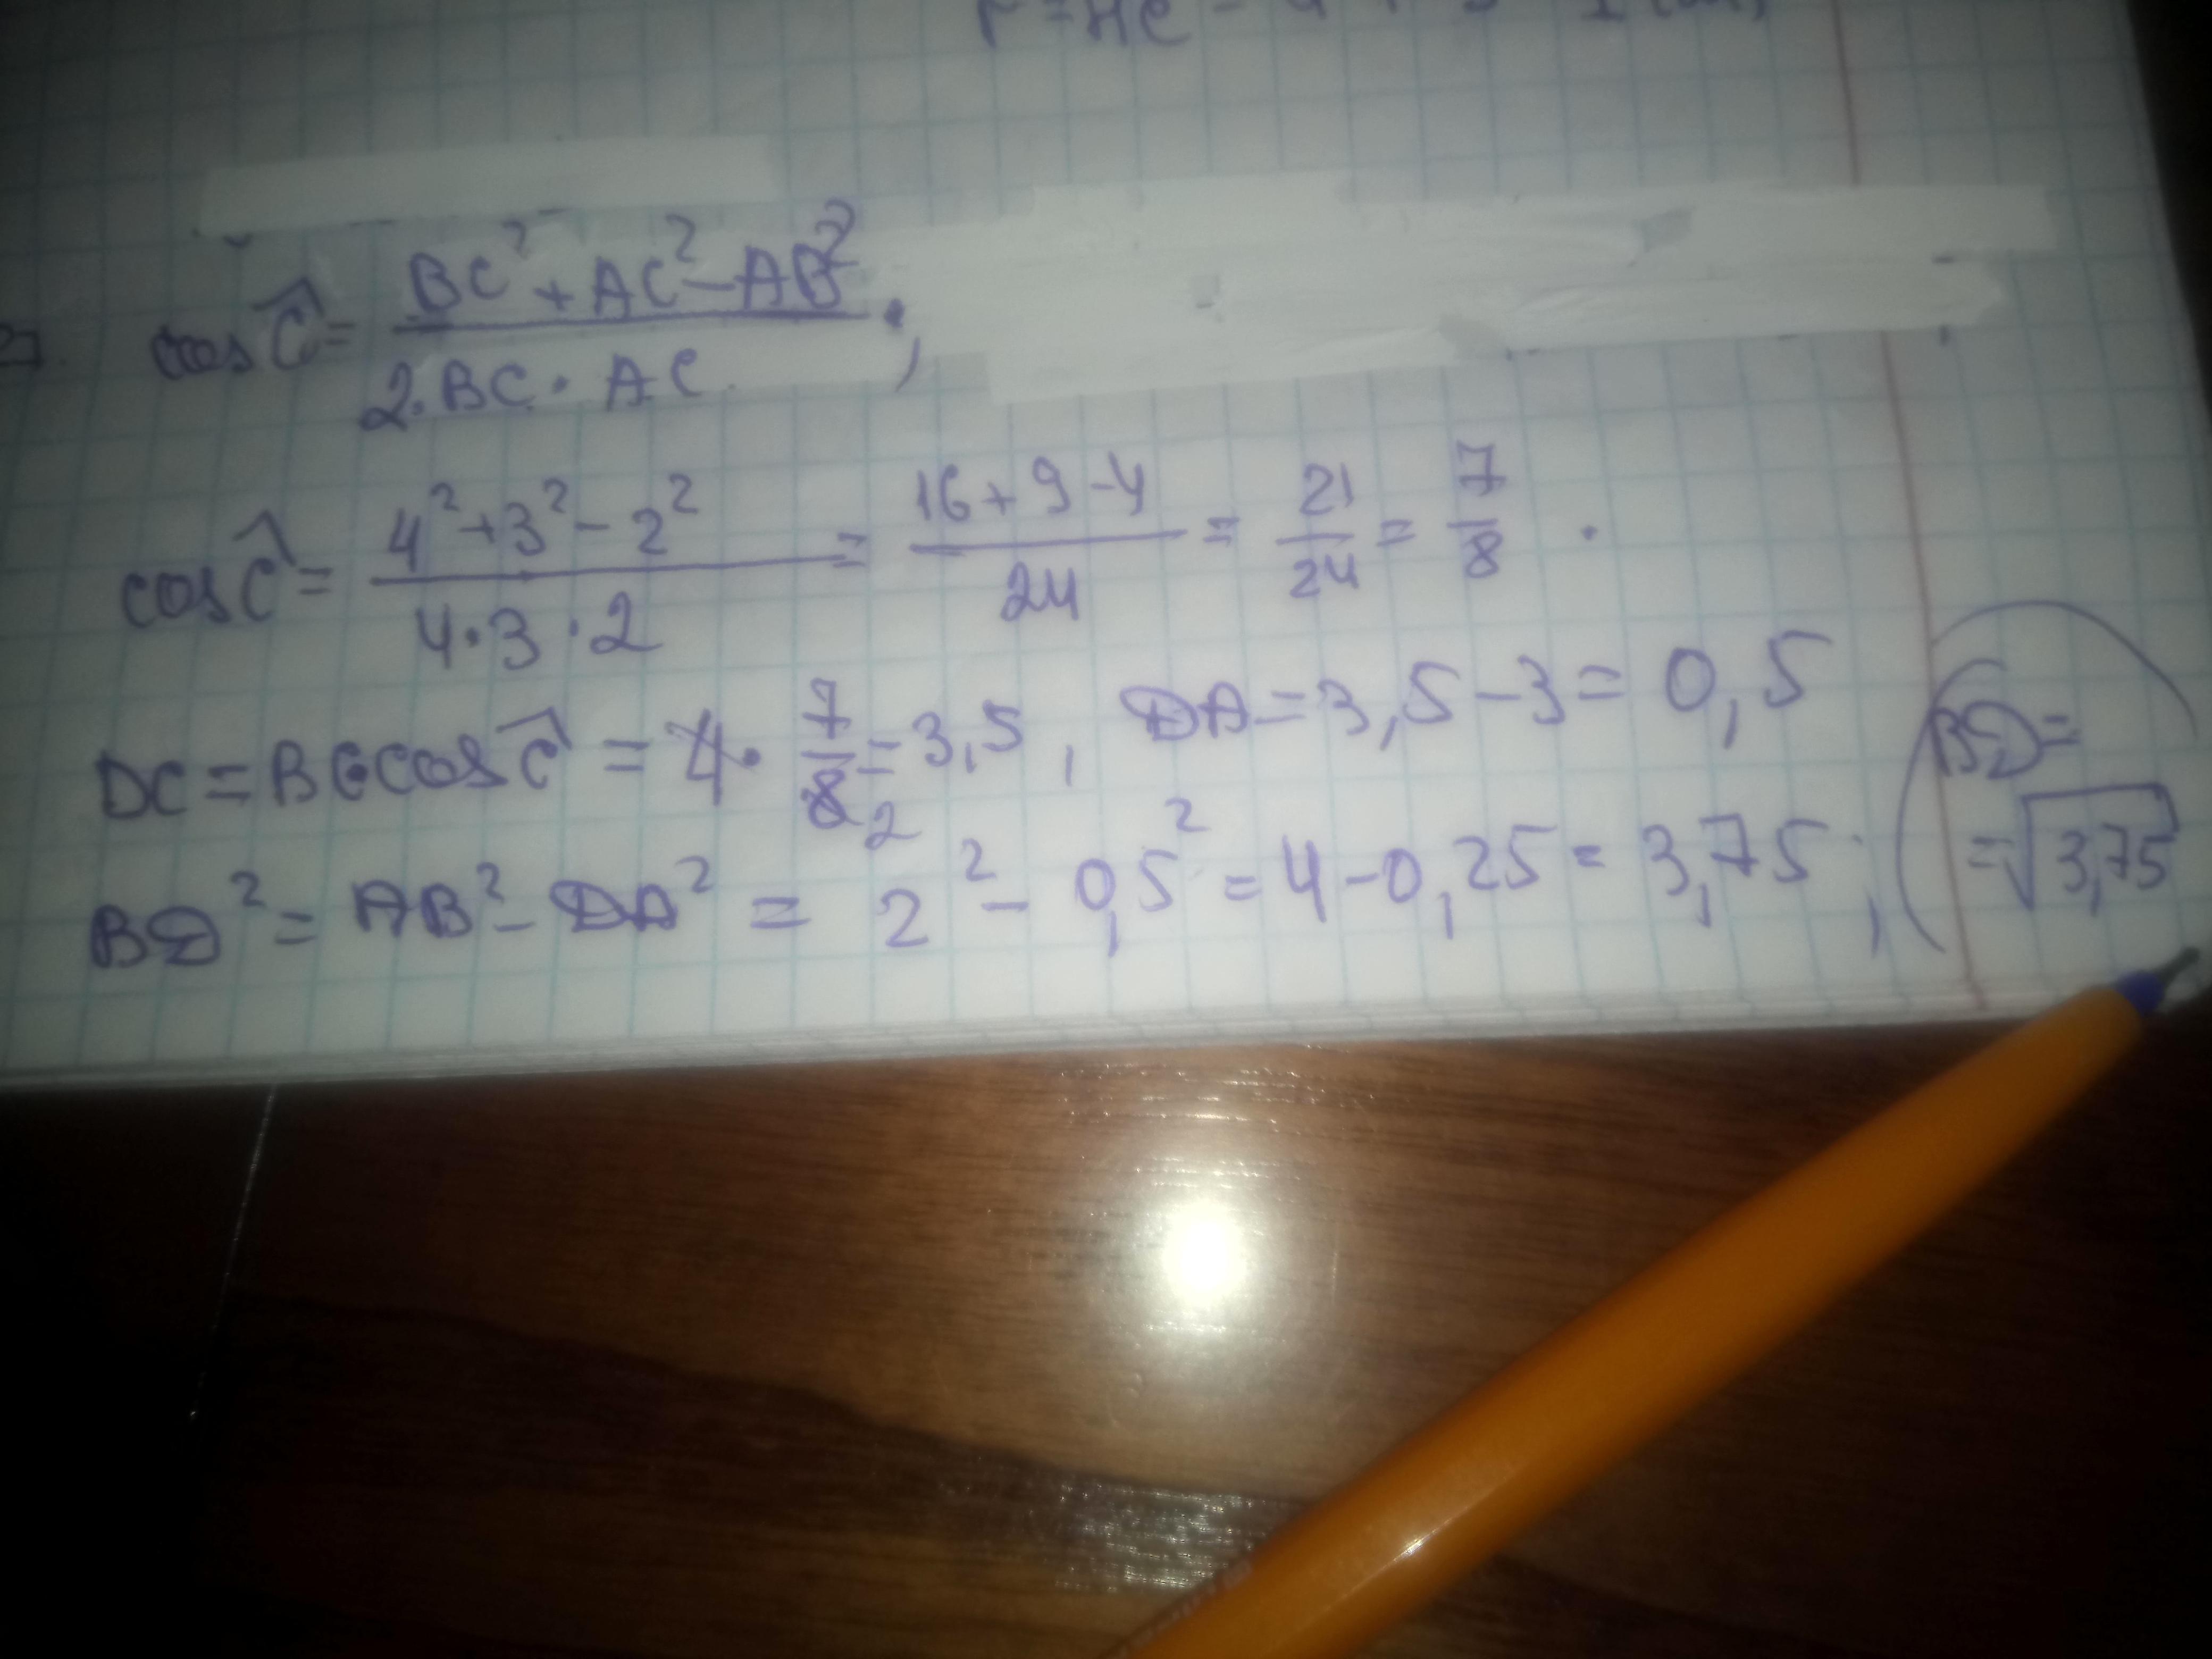 cos Ĉ = BC² + AC² - AB² / 2·BC·AC ;
cos Ĉ = 4² + 3² - 2² / 4·3·2 = 16 + 9 - 4 / 24 = 21/24 = 7/8 .
DC = BC·cos Ĉ = 4 · 7/8 2 = 3,5 , DA = 3,5 - 3 = 0,5
BD² = AB² - DA² = 2² - 0,5² = 4 - 0,25 = 3,75 ;
BD =
= √3,75